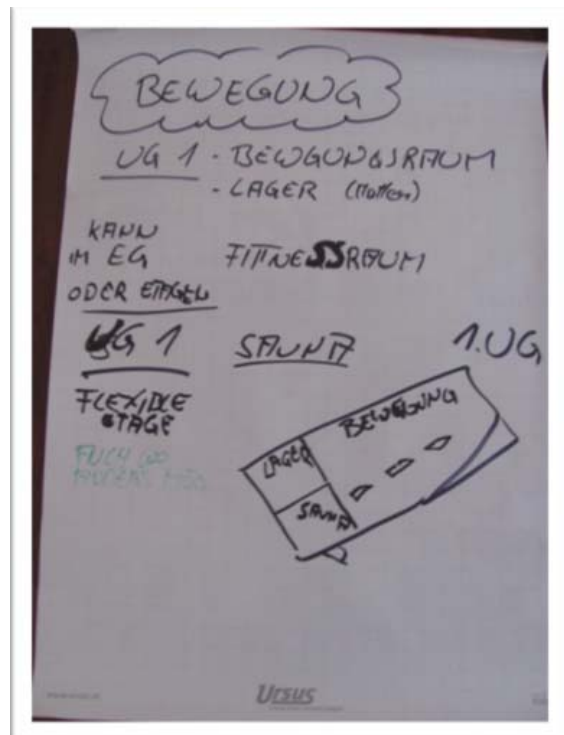 BEWEGUNG
UG 1 - BEWGUNGSRAUM
- LAGER (Matten)
KANN
IM EG
ODER ETAGEN
FITNESSRAUM
UG 1
SAUNA
1.UG
FLEXIBLE
ETAGE
BEWEGUNG
LAGER
SAUNA
Ursus